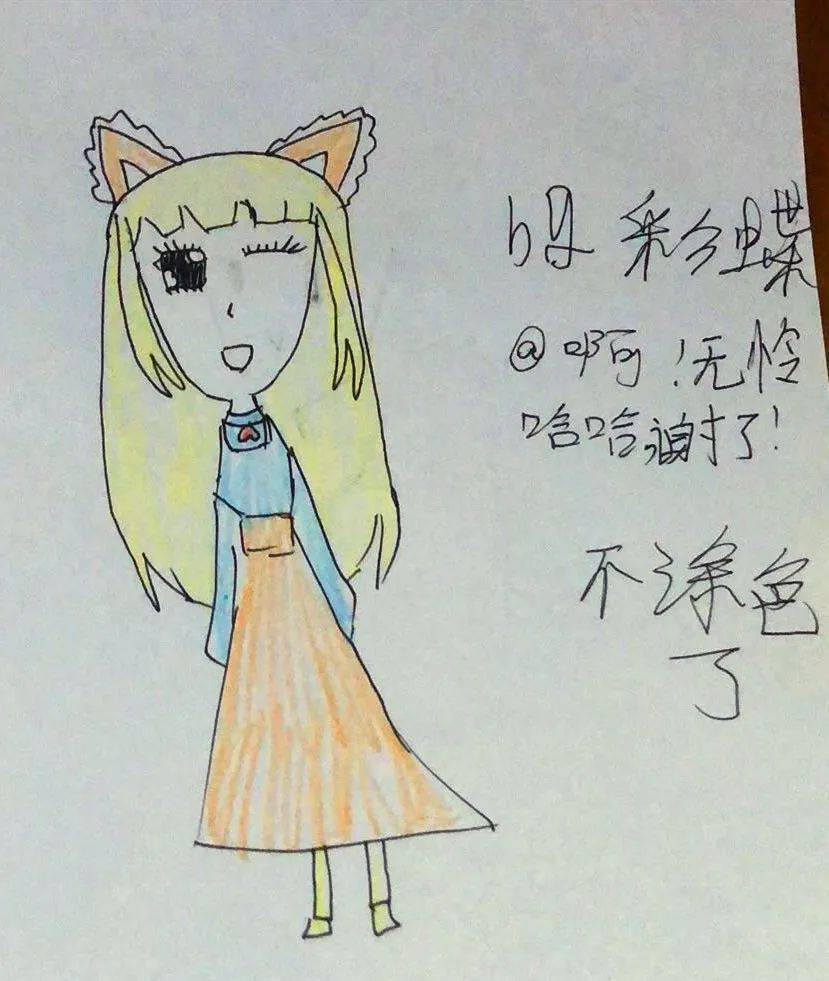 by 彩蝶
@啊!无怜
哈哈谢了!
不涂色
了